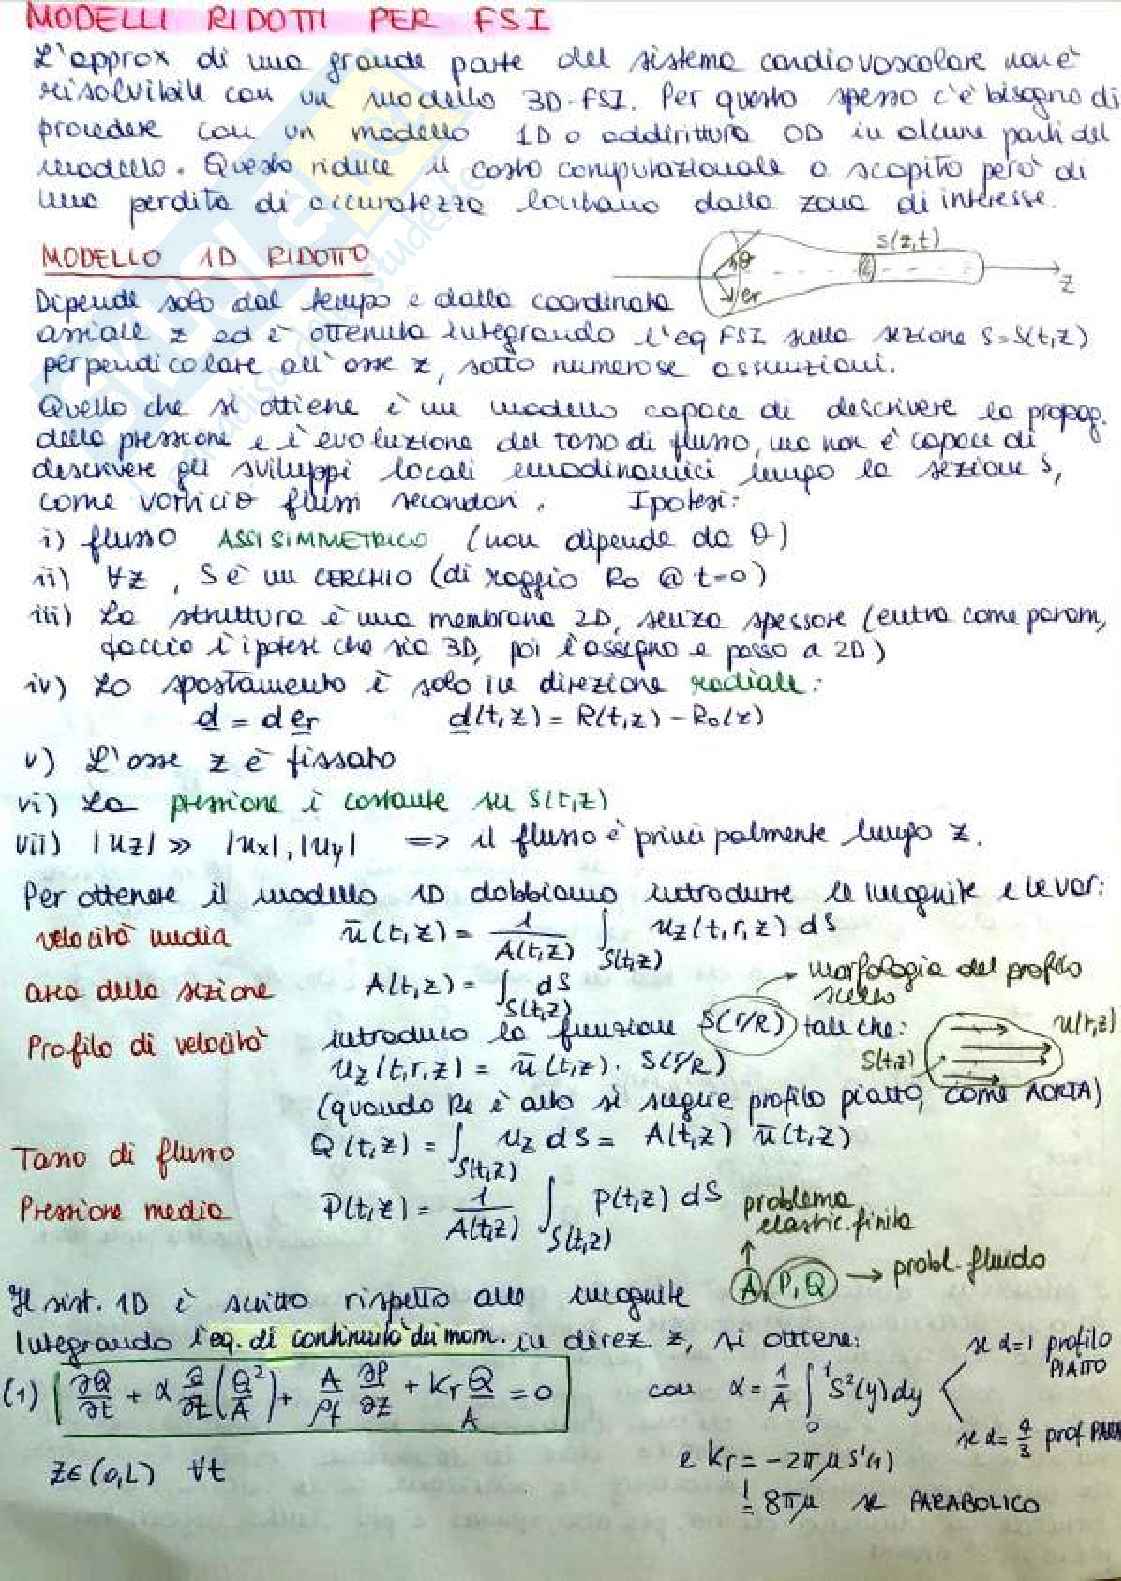 MODELLI RIDOTTI PER FSI
L'approx di una grande parte del sistema cardiovascolare non è
risolvibile con un modello 3D-FSI. Per questo spesso c'è bisogno di
procedere con un modello 1D o addirittura 0D in alcune parti del
modello. Questo riduce il costo computazionale a scapito però di
una perdita di accuratezza lontano dalla zona di interesse.
MODELLO 1D RIDOTTO
S(z,t)
θ
er
z
Dipende solo dal tempo e dalla coordinata
assiale z ed è ottenuta integrando l'eq FSI sulla sezione S=S(t,z)
perpendicolare all'asse z, sotto numerose assunzioni.
Quello che si ottiene è un modello capace di descrivere la propag.
della pressione e l'evoluzione del tasso di flusso, ma non è capace di
descrivere gli sviluppi locali emodinamici lungo la sezione S,
come vortici o flussi secondari. Ipotesi:
i) flusso ASSISIMMETRICO (non dipende da θ)
ii) ∀z, S è un CERCHIO (di raggio R₀ @ t=0)
iii) La struttura è una membrana 2D, senza spessore (entra come param,
faccio l'ipotesi che sia 3D, poi l'assegno e passo a 2D)
iv) Lo spostamento è solo in direzione radiale:
d = d er d(t,z) = R(t,z) - R₀(z)
v) L'asse z è fissato
vi) La pressione è costante su S(t,z)
vii) |uz| >> |ux|, |uy| => il flusso è principalmente lungo z.
Per ottenere il modello 1D dobbiamo introdurre le incognite e le var:
velocità media ū(t,z) = 1/A(t,z) ∫S(t,z) uz(t,r,z) dS
area della sezione A(t,z) = ∫S(t,z) dS
morfologia del profilo
scelto
Profilo di velocità introduco la funzione S(r/R) tale che:
uz(t,r,z) = ū(t,z) · S(r/R)
u(r,z)
S(t,z)
(quando Re è alto si sceglie profilo piatto, come AORTA)
Tasso di flusso Q(t,z) = ∫S(t,z) uz dS = A(t,z) ū(t,z)
Pressione media P(t,z) = 1/A(t,z) ∫S(t,z) p(t,z) dS
problema
elastic. finita
Il sist. 1D è scritto rispetto alle incognite A, P, Q → probl. fluido
Integrando l'eq. di continuità dei mom. in direz. z, si ottiene:
(1) ∂Q/∂t + α ∂/∂z (Q²/A) + A/ρf ∂P/∂z + Kr Q/A = 0
con α = 1/A ∫₀¹ S²(y) dy
se α=1 profilo
PIATTO
se α = 4/3 prof PARA
z∈(0,L) ∀t
e Kr = -2πμ S'(1)
= 8πμ se PARABOLICO